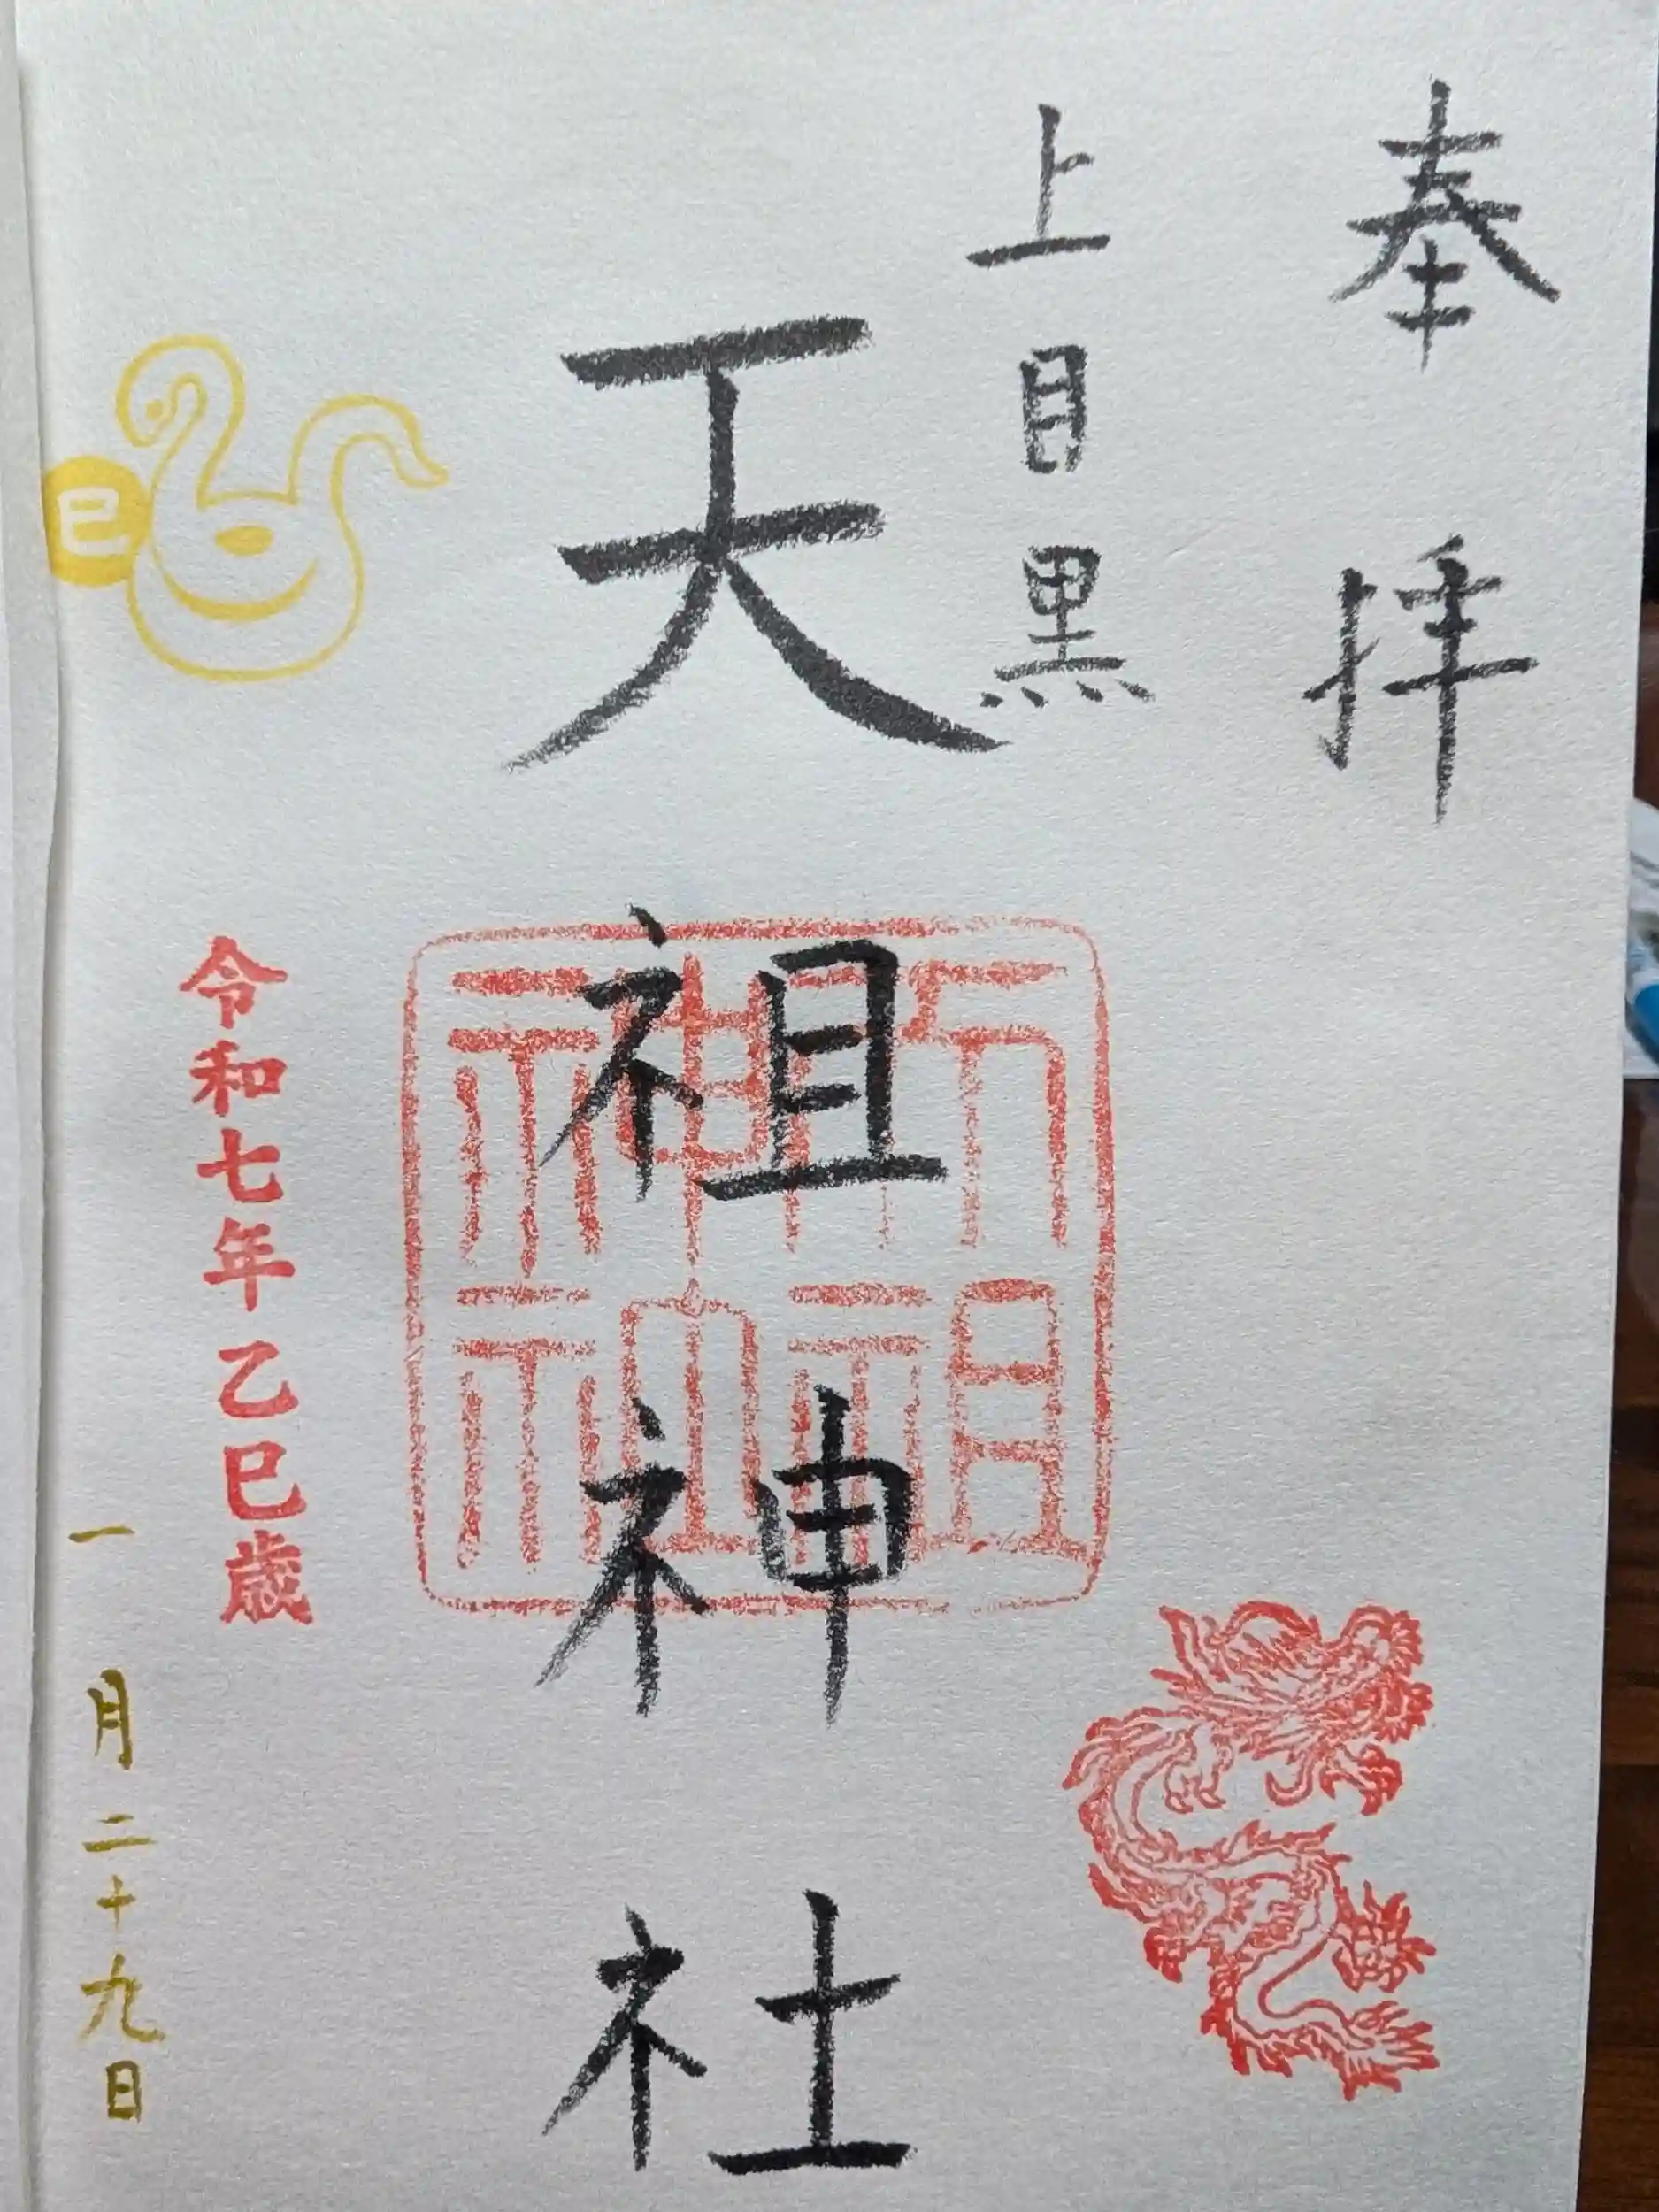 奉拝
上目黒
天祖神社
天祖神社
巳
令和七年乙巳歳
一月二十九日